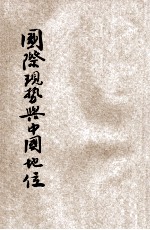 國際現势與中國地位